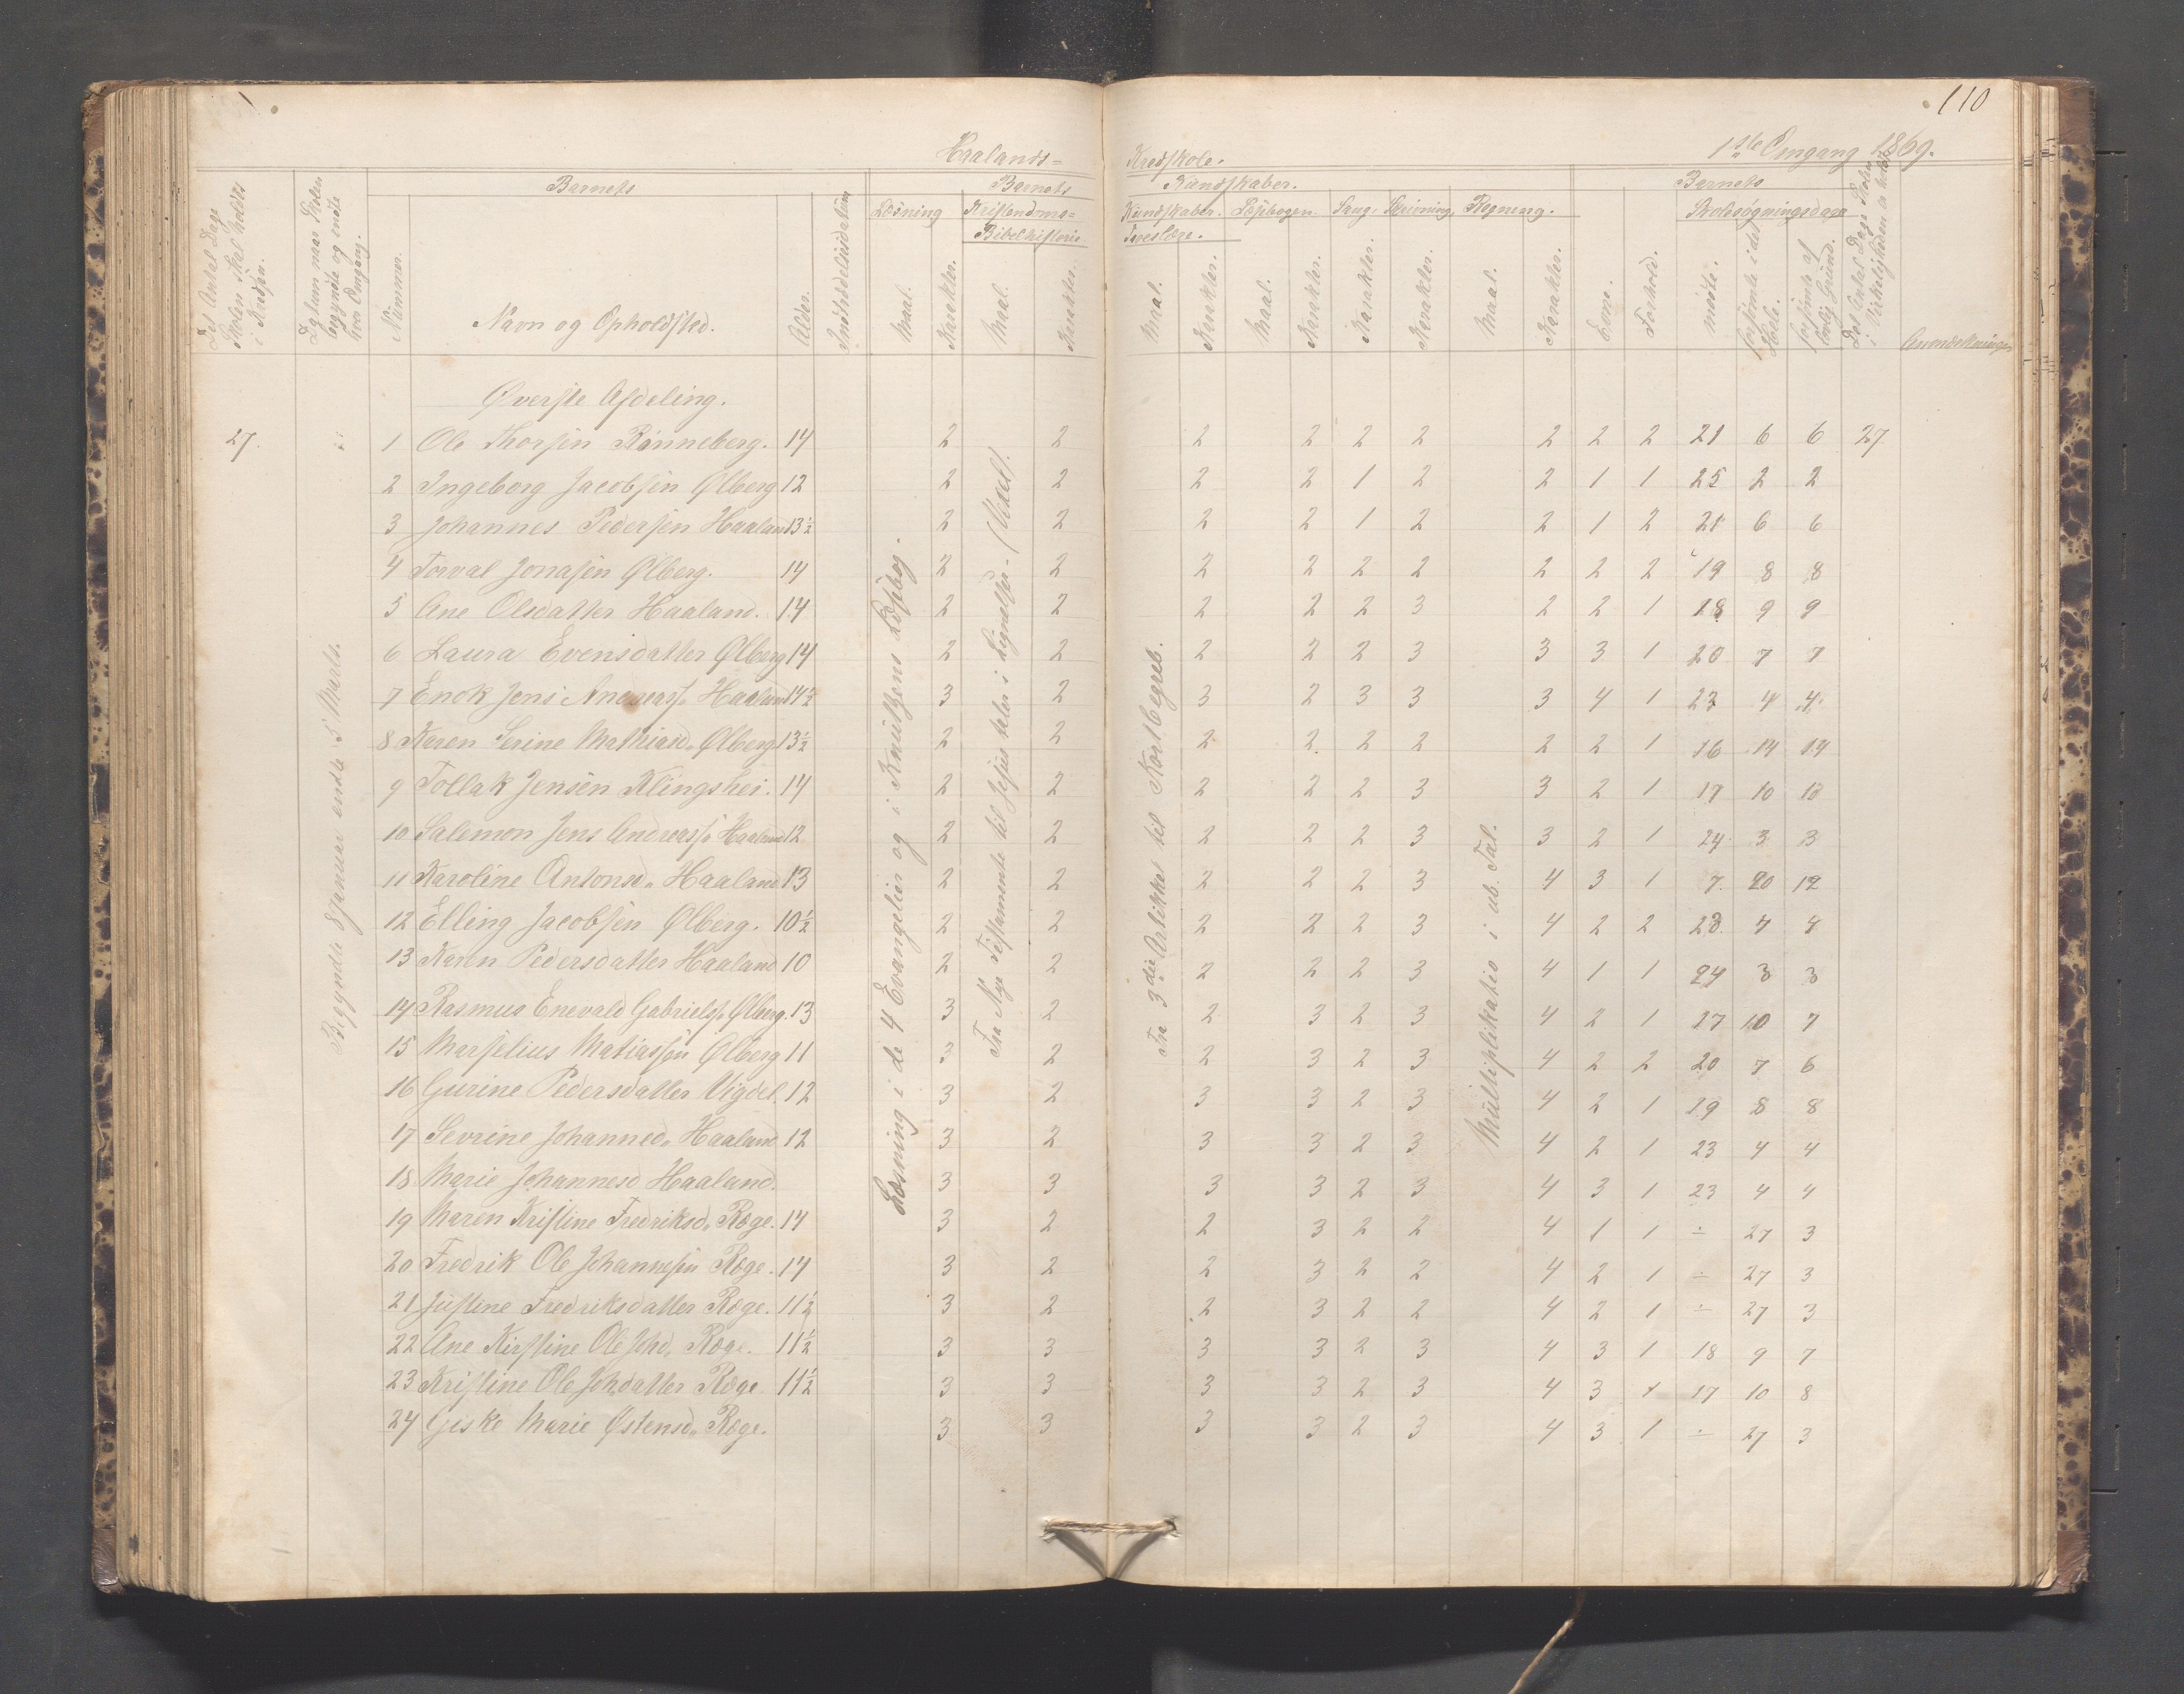 110
Haalands=
Kredsskole.
1ste Omgang 1869.
Det Antal Dage Skolen skal holdes i Kredsen.
Datum naar Skolen begyndte og endte hver Omgang.
Barnets
Barnets
Kundskaber.
Barnets
Nummer.
Navn og Opholdssted.
Alder.
Indtrædelsesdatum
Læsning
Kristendoms=
Bibelhistorie
Kundskaber.
Troeslære.
Læsebogen.
Sang.
Skrivning.
Regning.
Skolesøgningsdage
Maal.
Karakter.
Maal.
Karakter.
Maal.
Karakter.
Maal.
Karakter.
Karakter.
Karakter.
Maal.
Karakter.
Evne.
Forhold.
mødte.
forsømte i det Hele.
forsømte af lovlig Grund.
Det Antal Dage Skolen i Virkeligheden er holdt
Anmærkninger
Øverste Afdeling.
27. 1 Ole Thorsen Rønneberg. 14 2 2 2 2 2 2 2 2 2 21 6 6 27
2 Ingeborg Jacobsen Ølberg 12 2 2 2 2 1 2 2 1 1 25 2 2
3 Johannes Pedersen Haaland 13½ 2 2 2 2 1 2 2 1 2 21 6 6
4 Torval Jonasen Ølberg. 14 2 2 2 2 2 2 2 2 2 19 8 8
5 Ane Olsdatter Haaland. 14 2 2 2 2 2 3 2 2 1 18 9 9
6 Laura Evensdatter Ølberg 14 2 2 2 2 2 3 3 3 1 20 7 7
7 Enok Jens Andreass. Haaland 14½ 3 2 3 2 3 3 3 4 1 23 4 4
8 Karen Serine Mathiasd. Ølberg 13½ 2 2 2 2 2 2 2 2 1 16 14 14
9 Tollak Jensen Klingshei. 14 2 2 2 2 2 3 3 2 1 17 10 10
10 Salemon Jens Andreass. Haaland 12 2 2 2 2 2 3 3 2 1 24 3 3
11 Karoline Antonsd. Haaland 13 2 2 2 2 2 3 4 3 1 7 20 12
12 Elling Jacobsen Ølberg. 10½ 2 2 2 2 2 3 4 2 2 23 4 4
13 Karen Pedersdatter Haaland 10 2 2 2 2 2 3 4 1 1 24 3 3
14 Rasmus Enevald Gabriels. Ølberg. 13 3 2 2 3 2 3 4 2 1 17 10 7
15 Marselius Matiassen Ølberg 11 3 2 2 3 2 3 4 2 2 20 7 6
16 Gurine Pedersdatter Vigdel. 12 3 2 3 3 2 3 4 2 1 19 8 8
17 Sevrine Johannesd. Haaland 12 3 2 3 3 2 3 4 2 1 23 4 4
18 Marie Johannesd Haaland. 3 3 3 3 2 3 4 3 1 23 4 4
19 Maren Kristine Fredriksd. Ræge. 14 3 2 2 3 2 2 4 1 1 ÷ 27 3
20 Fredrik Ole Johannesen Ræge. 14 3 2 2 3 2 2 4 2 1 ÷ 27 3
21 Justine Fredriksdatter Ræge. 11½ 3 2 2 3 2 2 4 2 1 ÷ 27 3
22 Ane Kirstine Ole Johd. Ræge. 11½ 3 3 3 3 2 3 4 3 1 18 9 7
23 Kristine Ole Johdatter Ræge 11½ 3 3 3 3 2 3 4 3 1 17 10 8
24 Giske Marie Østensd. Ræge. 3 3 3 3 2 3 4 3 1 ÷ 27 3
Begyndte 8 Januar endte 5 Marts.
Læsning i de 4 Evangelier og i Knutzens Læsebog.
Fra Nye Testamente til Jesus taler i Lignelser. (Vedel).
Fra 3die Artikkel til Kortbegreb.
Multiplikatio i ub. Tal.